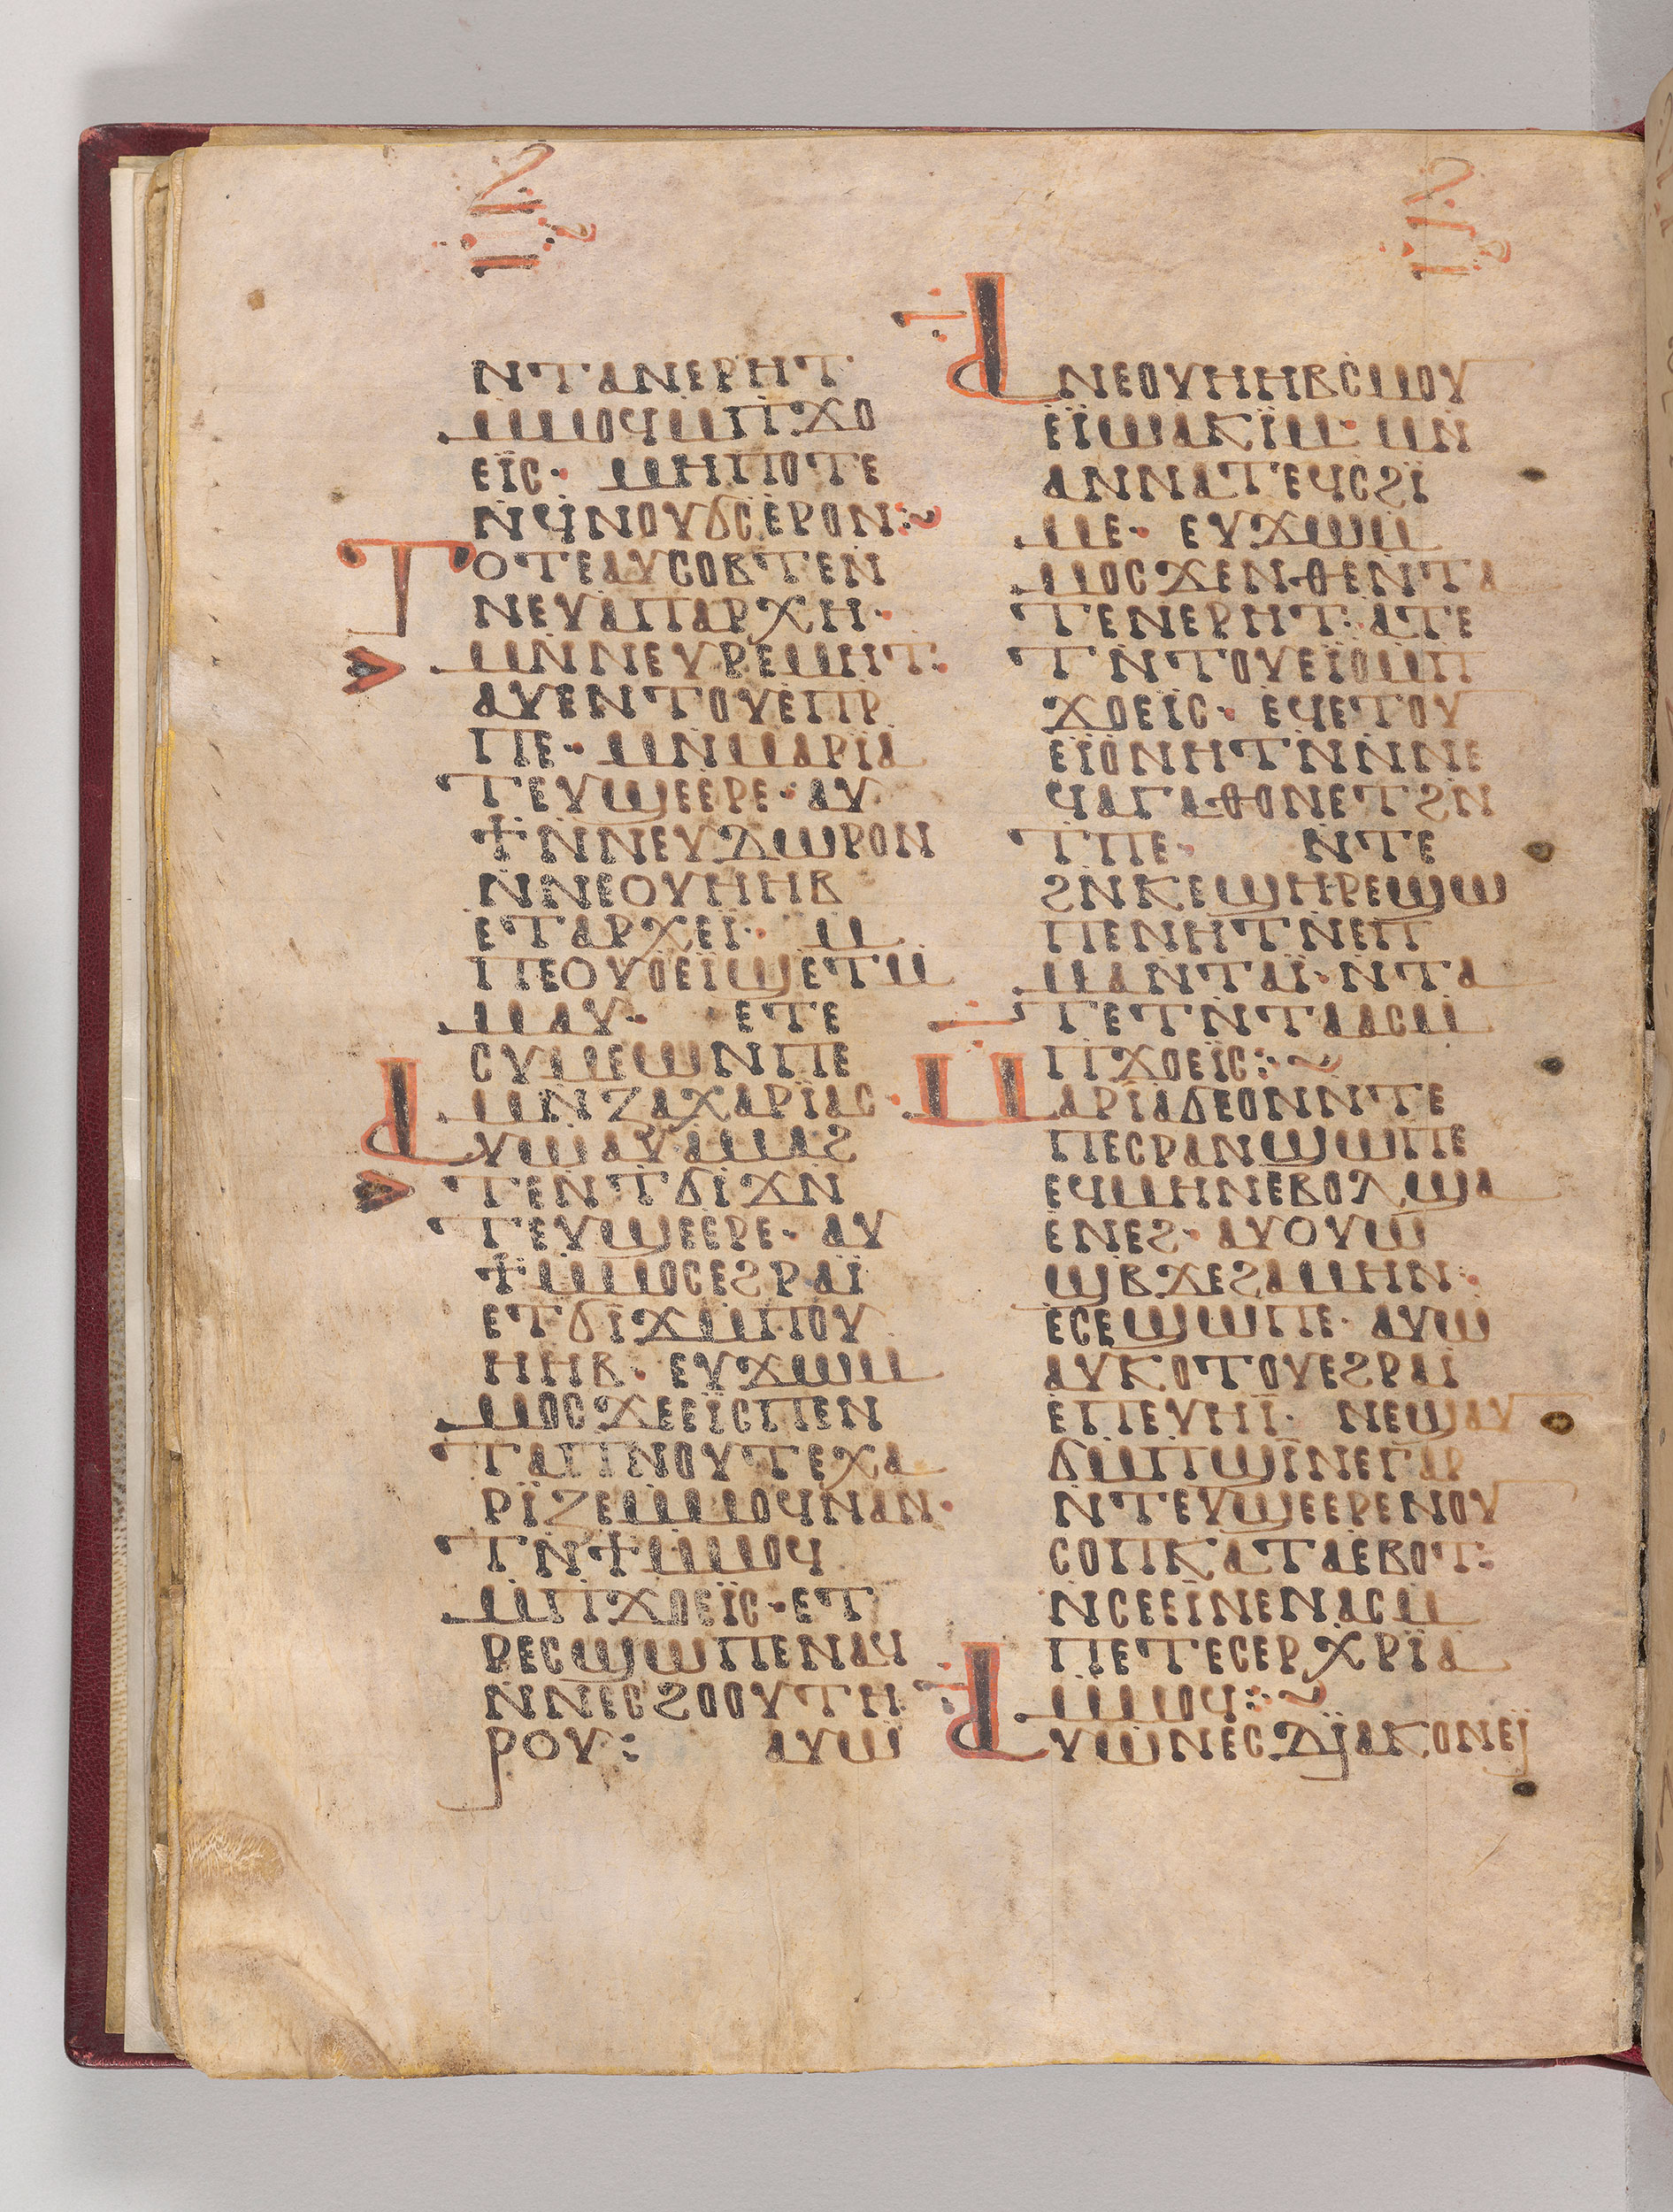 ⲛⲧⲁⲛⲉⲣⲏⲧ
ⲙⲙⲟϥⲙⲡϫⲟ
ⲉⲓ̈ⲥ· ⲙⲏⲡⲟⲧⲉ
ⲛϥⲛⲟⲩϭⲥⲉⲣⲟⲛ:~
ⲧⲟⲧⲉⲁⲩⲥⲟⲃⲧⲉⲛ
ⲛⲉⲩⲁⲡⲁⲣⲭⲏ·
ⲙⲛⲛⲉⲩⲣⲉⲙⲏⲧ:
ⲁⲩⲉⲛⲧⲟⲩⲉⲡⲣ
ⲡⲉ· ⲙⲛⲙⲁⲣⲓⲁ
ⲧⲉⲩϣⲉⲉⲣⲉ· ⲁⲩ
ϯⲛⲛⲉⲩⲇⲱⲣⲟⲛ
ⲛⲛⲉⲟⲩⲏⲏⲃ
ⲉⲧⲁⲣⲭⲉⲓ̈· ⲙ
ⲡⲉⲟⲩⲟⲉⲓϣⲉⲧⲙ
ⲙⲁⲩ· ⲉⲧⲉ
ⲥⲩⲙⲉⲱⲛⲡⲉ
ⲙⲛⲍⲁⲭⲁⲣⲓⲁⲥ·
ⲁⲩⲱⲁⲩⲁⲙⲁϩ
ⲧⲉⲛⲧϭⲓϫⲛ
ⲧⲉⲩϣⲉⲉⲣⲉ· ⲁⲩ
ϯⲙⲙⲟⲥⲉϩⲣⲁⲓ̈
ⲉⲧϭⲓϫⲙⲡⲟⲩ
ⲏⲏⲃ· ⲉⲩϫⲱⲙ
ⲙⲟⲥϫⲉⲉⲓ̈ⲥⲡⲉⲛ
ⲧⲁⲡⲛⲟⲩⲧⲉⲭⲁ
ⲣⲓ̈ⲍⲉⲙⲙⲟϥⲛⲁⲛ·
ⲧⲛϯⲙⲙⲟϥ
ⲙⲡϫⲟⲉⲓ̈ⲥ· ⲉⲧ
ⲣⲉⲥϣⲱⲡⲉⲛⲁϥ
ⲛⲛⲉⲥϩⲟⲟⲩⲧⲏ
ⲣⲟⲩ: ⲁⲩⲱ
ⲁⲛⲉⲟⲩⲏⲏⲃⲥⲙⲟⲩ
ⲉⲓ̈ⲱⲁⲕⲓⲙ· ⲙⲛ
ⲁⲛⲛⲁⲧⲉϥⲥϩⲓ
ⲙⲉ· ⲉⲩϫⲱⲙ
ⲙⲟⲥϫⲉⲛⲑⲉⲛⲧⲁ
ⲧⲉⲛⲉⲣⲏⲧ· ⲁⲧⲉ
ⲧⲛⲧⲟⲩⲉⲓ̈ⲟⲙⲡ
ϫⲟⲉⲓ̈ⲥ· ⲉϥⲉⲧⲟⲩ
ⲉⲓ̈ⲟⲛⲏⲧⲛⲛⲛⲉ
ϥⲁⲅⲁⲑⲟⲛⲉⲧϩⲛ
ⲧⲡⲉ· ⲛⲧⲉ
ϩⲛⲕⲉϣⲏⲣⲉϣⲱ
ⲡⲉⲛⲏⲧⲛⲉⲡ
ⲙⲁⲛⲧⲁⲓ̈· ⲛⲧⲁ
ⲧⲉⲧⲛⲧⲁⲁⲥⲙ
ⲡϫⲟⲉⲓ̈ⲥ:~
ⲙⲁⲣⲓⲁϭⲉⲟⲛⲛⲧⲉ
ⲡⲉⲥⲣⲁⲛϣⲱⲡⲉ
ⲉϥⲙⲏⲛⲉⲃⲟⲗϣⲁ
ⲉⲛⲉϩ· ⲁⲩⲟⲩⲱ
ϣⲃϫⲉϩⲁⲙⲏⲛ:
ⲉⲥⲉϣⲱⲡⲉ· ⲁⲩⲱ
ⲁⲩⲕⲟⲧⲟⲩⲉϩⲣⲁⲓ
ⲉⲡⲉⲩⲏⲓ̈· ⲛⲉϣⲁⲩ
ϭⲙⲡϣⲓⲛⲉⲅⲁⲣ
ⲛⲧⲉⲩϣⲉⲉⲣⲉⲛⲟⲩ
ⲥⲟⲡⲕⲁⲧⲁⲉⲃⲟⲧ:
ⲛⲥⲉⲉⲓⲛⲉⲛⲁⲥⲙ
ⲡⲉⲧⲉⲥⲉⲣⲭⲣⲓ̈ⲁ
ⲙⲙⲟϥ:~
ⲁⲩⲱⲛⲉⲥⲇⲓ̈ⲁⲕⲟⲛⲉⲓ̈